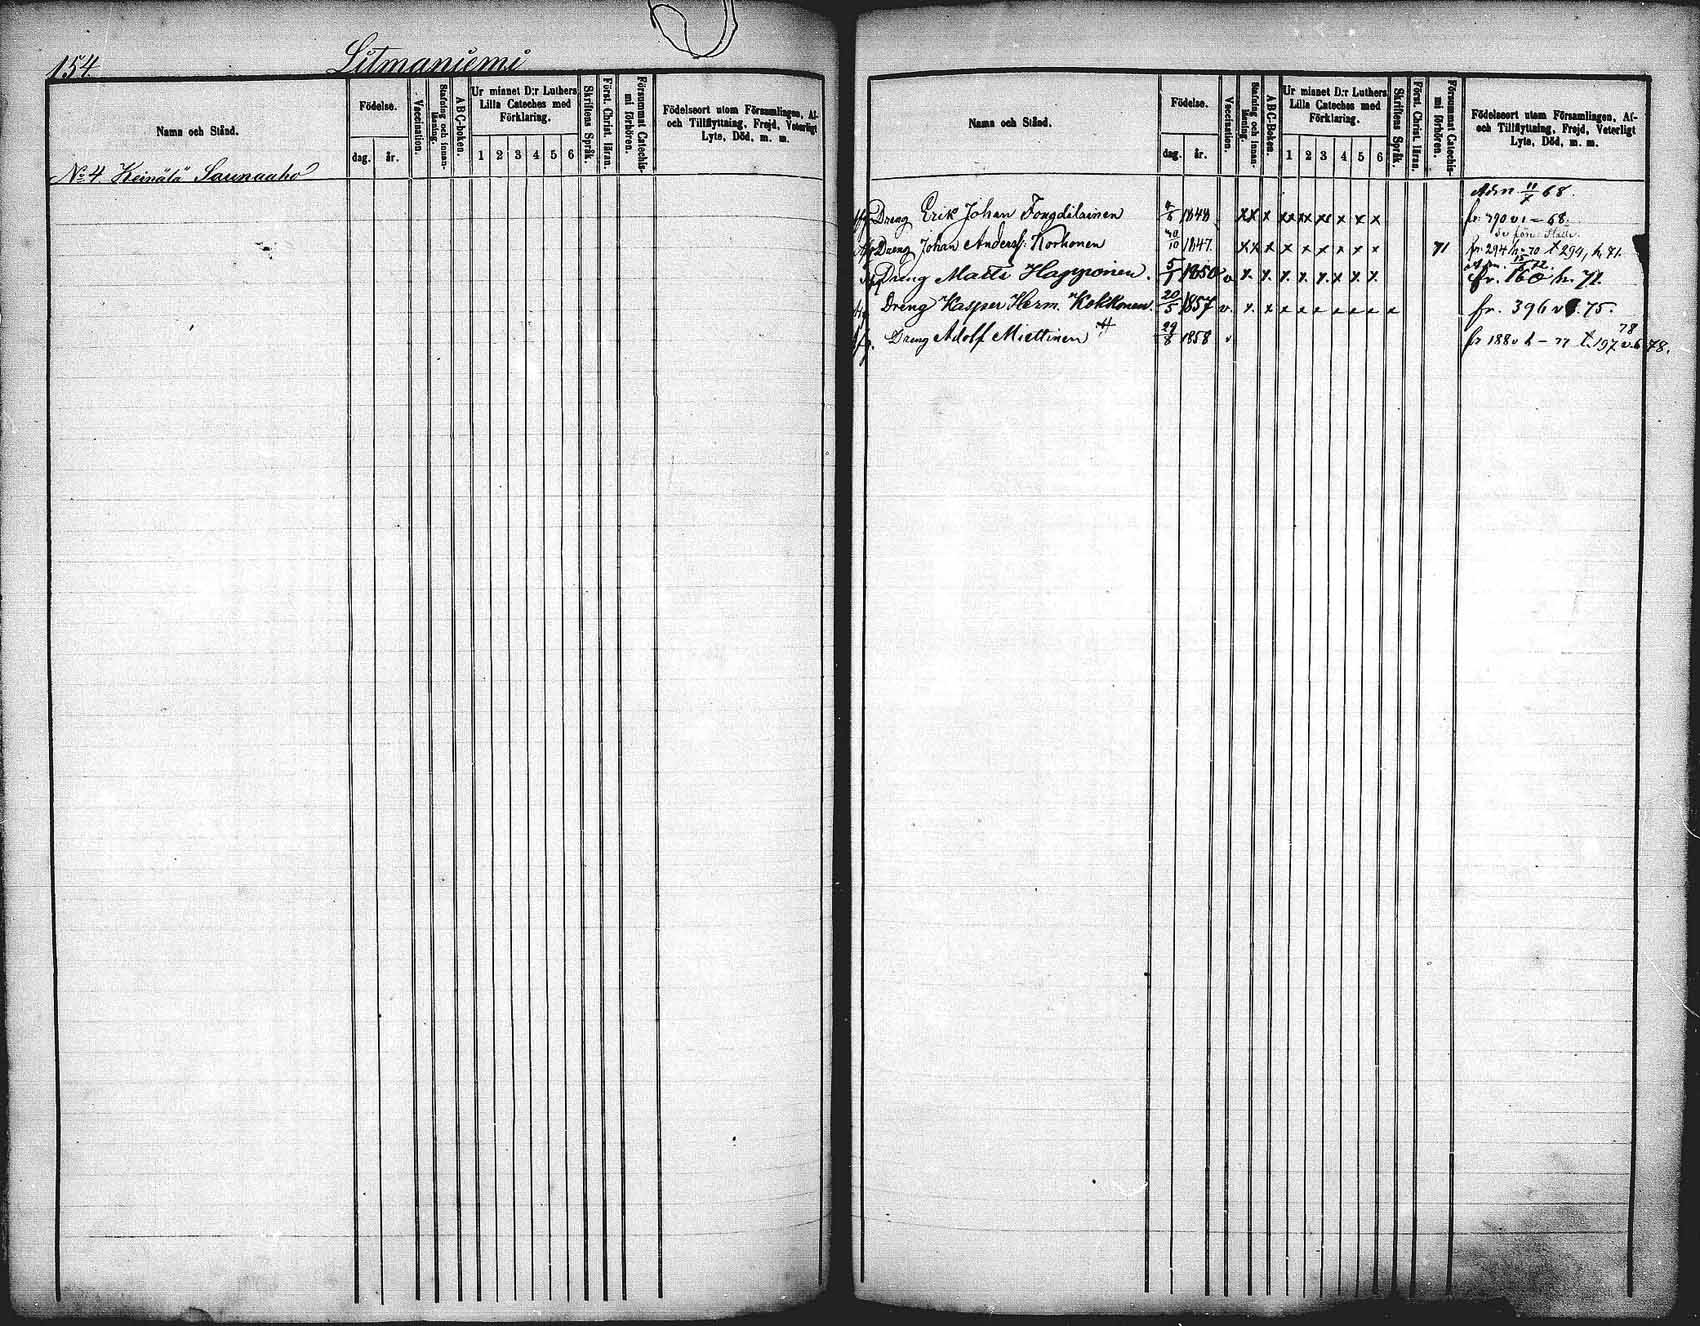 154.
Litmaniemi
Namn och Stånd.
Födelse.
dag.
år.
Vaccination.
Stafning och innan-läsning.
A B C-boken.
Ur minnet D:r Luthers
Lilla Cateches med
Förklaring.
1 2 3 4 5 6
Skriftens Språk.
Först. Christ. läran.
Försummat Catechis-
mi förhören.
Födelseort utom Församlingen, Af-
och Tillflyttning, Frejd, Veterligt
Lyte, Död, m. m.
No 4. Keinälä" Saunaaho
Namn och Stånd.
Födelse.
dag.
år.
Vaccination.
Stafning och innan-läsning.
A B C-Boken.
Ur minnet D:r Luthers
Lilla Cateches med
Förklaring.
1 2 3 4 5 6
Skriftens Språk.
Först. Christ. läran.
Försummat Catechis-
mi förhören.
Födelseort utom Församlingen, Af-
och Tillflyttning, Frejd, Veterligt
Lyte, Död, m. m.
68.
Dreng Erik Johan 1848 x x x x x x x x x fr. 790 v 1 – 68.
Dreng Johan Anderss: Korhonen 10 1847. x x x x x x x x x 71 fr. 294 h. 70 t. 294, h. 71.
Dreng Matts Happonen. 5/1 1850 v x x x x x x x x x fr. 160 h. 71.
Dreng Kasper Herm. Kokkonen. 20/5 1857 v. x x x x x x x x x fr. 396 v 75.
Dreng Adolf Miettinen 29/8 1858 v fr 188 v h – 77 t. 197 v. 6 78.
78